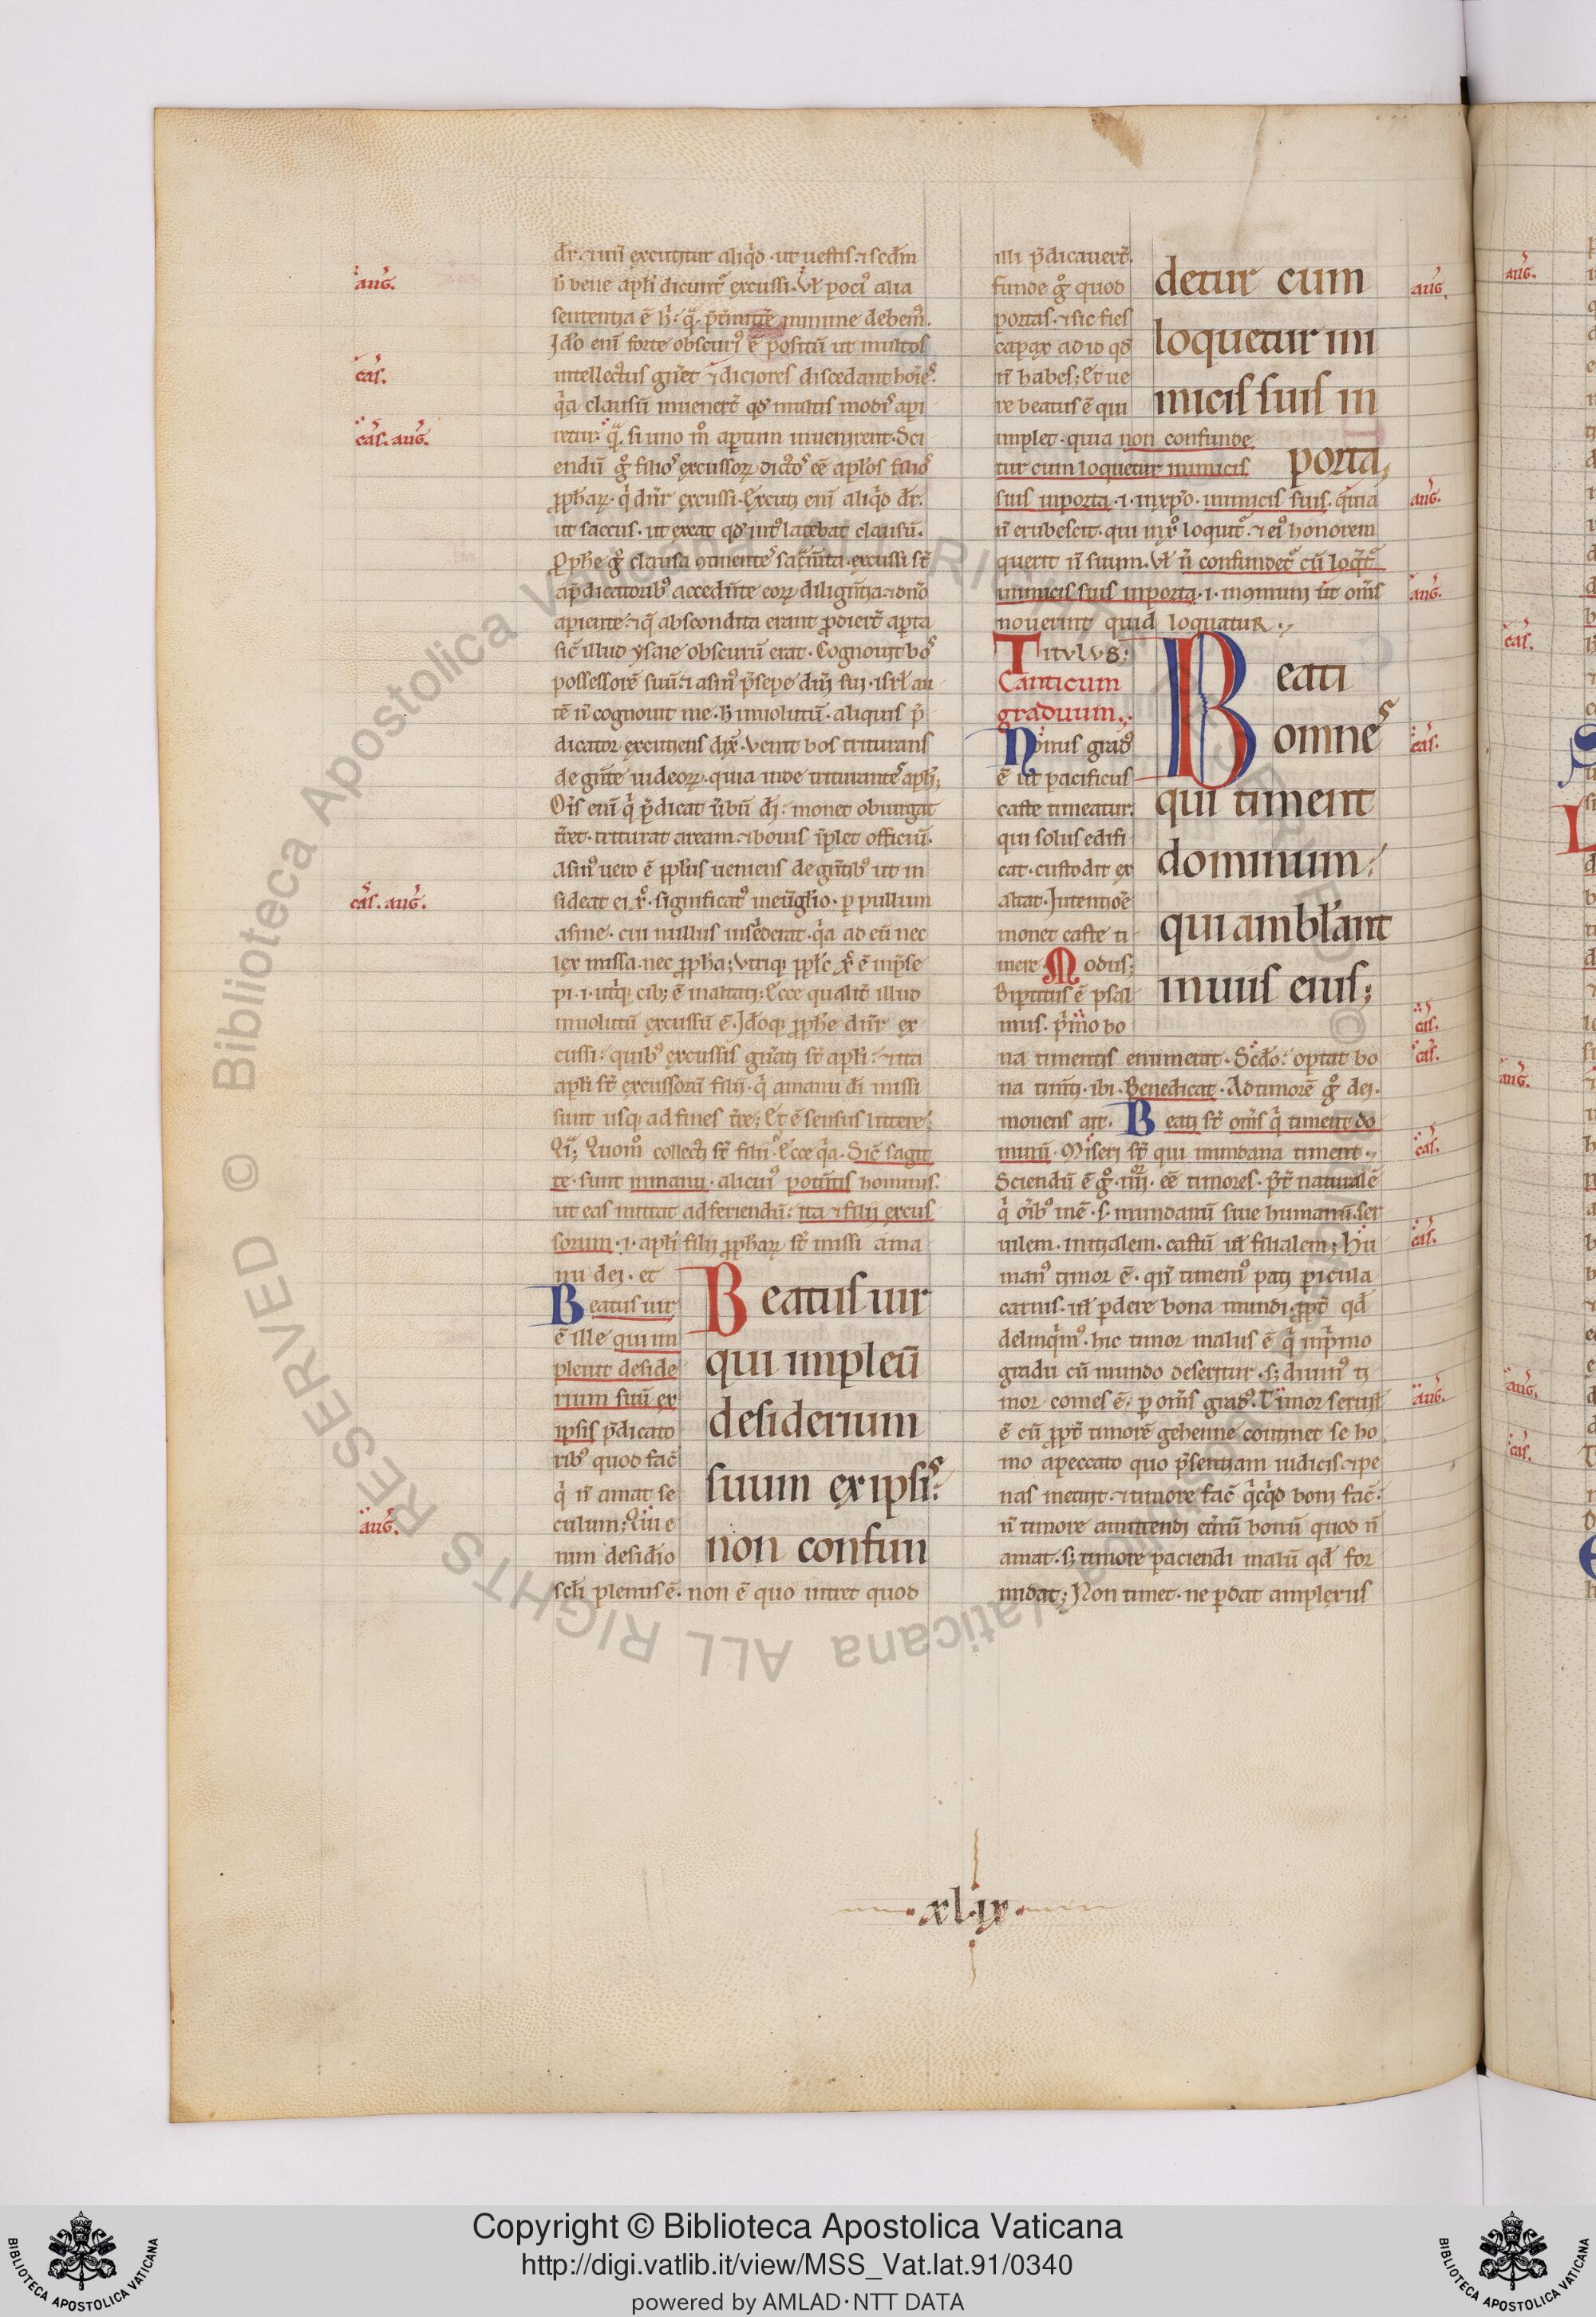 dr̄. ⁊ uñ excutitur aliq̇d. ut uestis. ⁊ scd̄m
h̄ bene apl̄i dicunt᷑ excussi. Vl̄ poci᷒ alia
sententia ē h̓. q̄. p̄t̄mitt̄e minime debem᷒.
Jdō eni᷒ forte obscuri᷒ ē positū ut multos
intellectus gñet ⁊ diciores discedant hoi᷒es.
q̇a clausū inuener̄t qd̄ multis modis apri
retur. q̄. si uno m̊ aptum inuenirent. Sci
endū g̊ filios excussoꝝ dictos eē apl̄os filios
ꝓphaꝝ. q̇ dn̄r excussi. Excuti eni᷒ aliq̇d dr̄.
ut saccus. ut exeat qd̄ int᷒ latebat clausū.
Ꝓphē g̊ clausa ꝯtinentes sac̄m̄ta. excussi st̄
a p̄dicatorib᷒ accedn̄te eoꝝ dilign̄tia. ⁊ dn̄o
apiente. ⁊ q̄ abscondita erant ꝓdier̄t apta
sic̄ illud ysaie obscurū erat. Cognouit bos
possessorē suū. ⁊ asin᷒ p̄sepe dn̄i sui. isrl̄ au
tē n̄ cognouit me. h̄ inuolutū. aliquis p̄
dicator excutiens dix̄. Venit bos triturans
de gn̄te iudeoꝝ. quia inde triturantes apl̄i;
Oi᷒s eni᷒ q̇ p̄dicat u̇bū di᷒. monet obiurgat
t̄ret. triturat aream. ⁊ bouis iplet officiū.
Asin᷒ uero ē ppl̄us ueniens de gn̄tib᷒ ut in
sideat ei x̄. significat᷒ in eu̅glio. p pullum
asine. cui nullus insederat. q̇a ad eū nec
lex missa. nec ꝓpha; Vtriq; ppl̄s x̄ ē in p̄se
pi. i. utq̇ cib; ē in altari; Ecce qualit̄ illud
inuolutū excussū ē. Jdoq; ꝓphē dn̄r ex
cussi: quib᷒ excussis gn̄ati st̄ apl̄i. ⁊ ita
apl̄i st̄ excussorū filii. q̇ a manu di missi
sunt usq; ad fines t̄re; Et ē sensus littere;
Quom̊ collecti st̄ filii. Ecce q̇a. Sic̄ sagit
te. sunt in manu. alicui᷒ potn̄tis hominis.
ut eas mittat ad feriendū: ita ⁊ filii excus
sorum. i. apl̄i filii ꝓphaꝝ st̄ missi a ma
nu dei. et
Beatus uir
ē ille qui im
pleuit deside
rium suū ex
ipsis p̄dicato
rib᷒ quod fac̄
q̇ n̄ amat se
culum; Qui e
nim desid̄io
scl̄i plenus ē. non ē quo intret quod
Beatus uir
qui impleū
desiderium
suum ex ipsis.
non confun
auḡ.
cas̄.
cas̄. auḡ.
cas̄. auḡ.
auḡ.
illi p̄dicauert̄.
funde g̊ quod
portas. ⁊ sic fies
capax ad id qd̄
n̄ habes; Et ue
re beatus ē qui
implet. quia non confunde
tur cum loquetur inimicis
suis in porta. i. in xp̄o. inimicis suis. quia
n̄ erubescit. qui in x̄ loquit᷑. ⁊ ei᷒ honorem
querit n̄ suum. Vl̄ n̄ confundet᷑ cū loq̄t᷑
inimicis suis in porta. i. in ꝯmuni ut om̄s
nouerint quid loquatur.
detur cum
loquetur ini
micis suis in
porta;
Titvlvs;
Canticum
graduum.
Nonus grad᷒
ē ut pacificus
caste timeatur.
qui solus edifi
cat. custodit ex
altat. Jntentio ē
monet caste ti
mere. Modus;
Bip̄titus ē psal
mus. p̄mo bo
na timentis enumerat. Scd̄o: optat bo
na tim̄ti. ibi. Benedicat. Ad timorē g̊ dei.
monens ait. Beati st̄ om̄s q̇ timent do
minū. Miseri st̄ qui mundana timent.
Sciendū ē g̊. iiii. eē timores. p̄t̄ naturalē
q̇ oi᷒b᷒ inē. s. mundanū siue humanū. ser
uilem. initialem. castū ul̄ filialem; Hu
man᷒ timor ē. qn̄ timem᷒ pati picula
carnis. ul̄ pdere bona mundi. ꝓpt̄ qd̄
delinq̇m᷒. hic timor malus ē q̇ in p̄mo
gradu cū mundo deseritur. s; diuin᷒ ti
mor comes ē. p om̄s grad᷒. Timor seruil̄
ē cū ꝓpt̄ timorē gehenne continet se ho
mo a peccato quo p̄sentiam iudicis. ⁊ pe
nas metuit. ⁊ timore fac̄ q̇cq̇d boni fac̄.
n̄ timore amittendi et̄nū bonū quod n̄
amat. s; timore paciendi malū qd̄ for
midat; Non timet. ne pdat amplexus
Beati
omnes
qui timent
dominum.
qui ambl̄ant
in uiis eius;
auḡ.
auḡ.
auḡ.
cas̄.
cas̄.
cas̄.
cas̄.
cas̄.
auḡ.
xl.ix
auḡ.
cas̄.
auḡ.
auḡ.
cas̄.
© Biblioteca Apostolica Vaticana ALL RIGHTS RESERVED
© Biblioteca Apostolica Vaticana ALL RIGHTS RESERVED
Copyright © Biblioteca Apostolica Vaticana
http://digi.vatlib.it/view/MSS_Vat.lat.91/0340
powered by AMLAD·NTT DATA
BIBLIOTECA APOSTOLICA VATICANA
BIBLIOTECA APOSTOLICA VATICANA